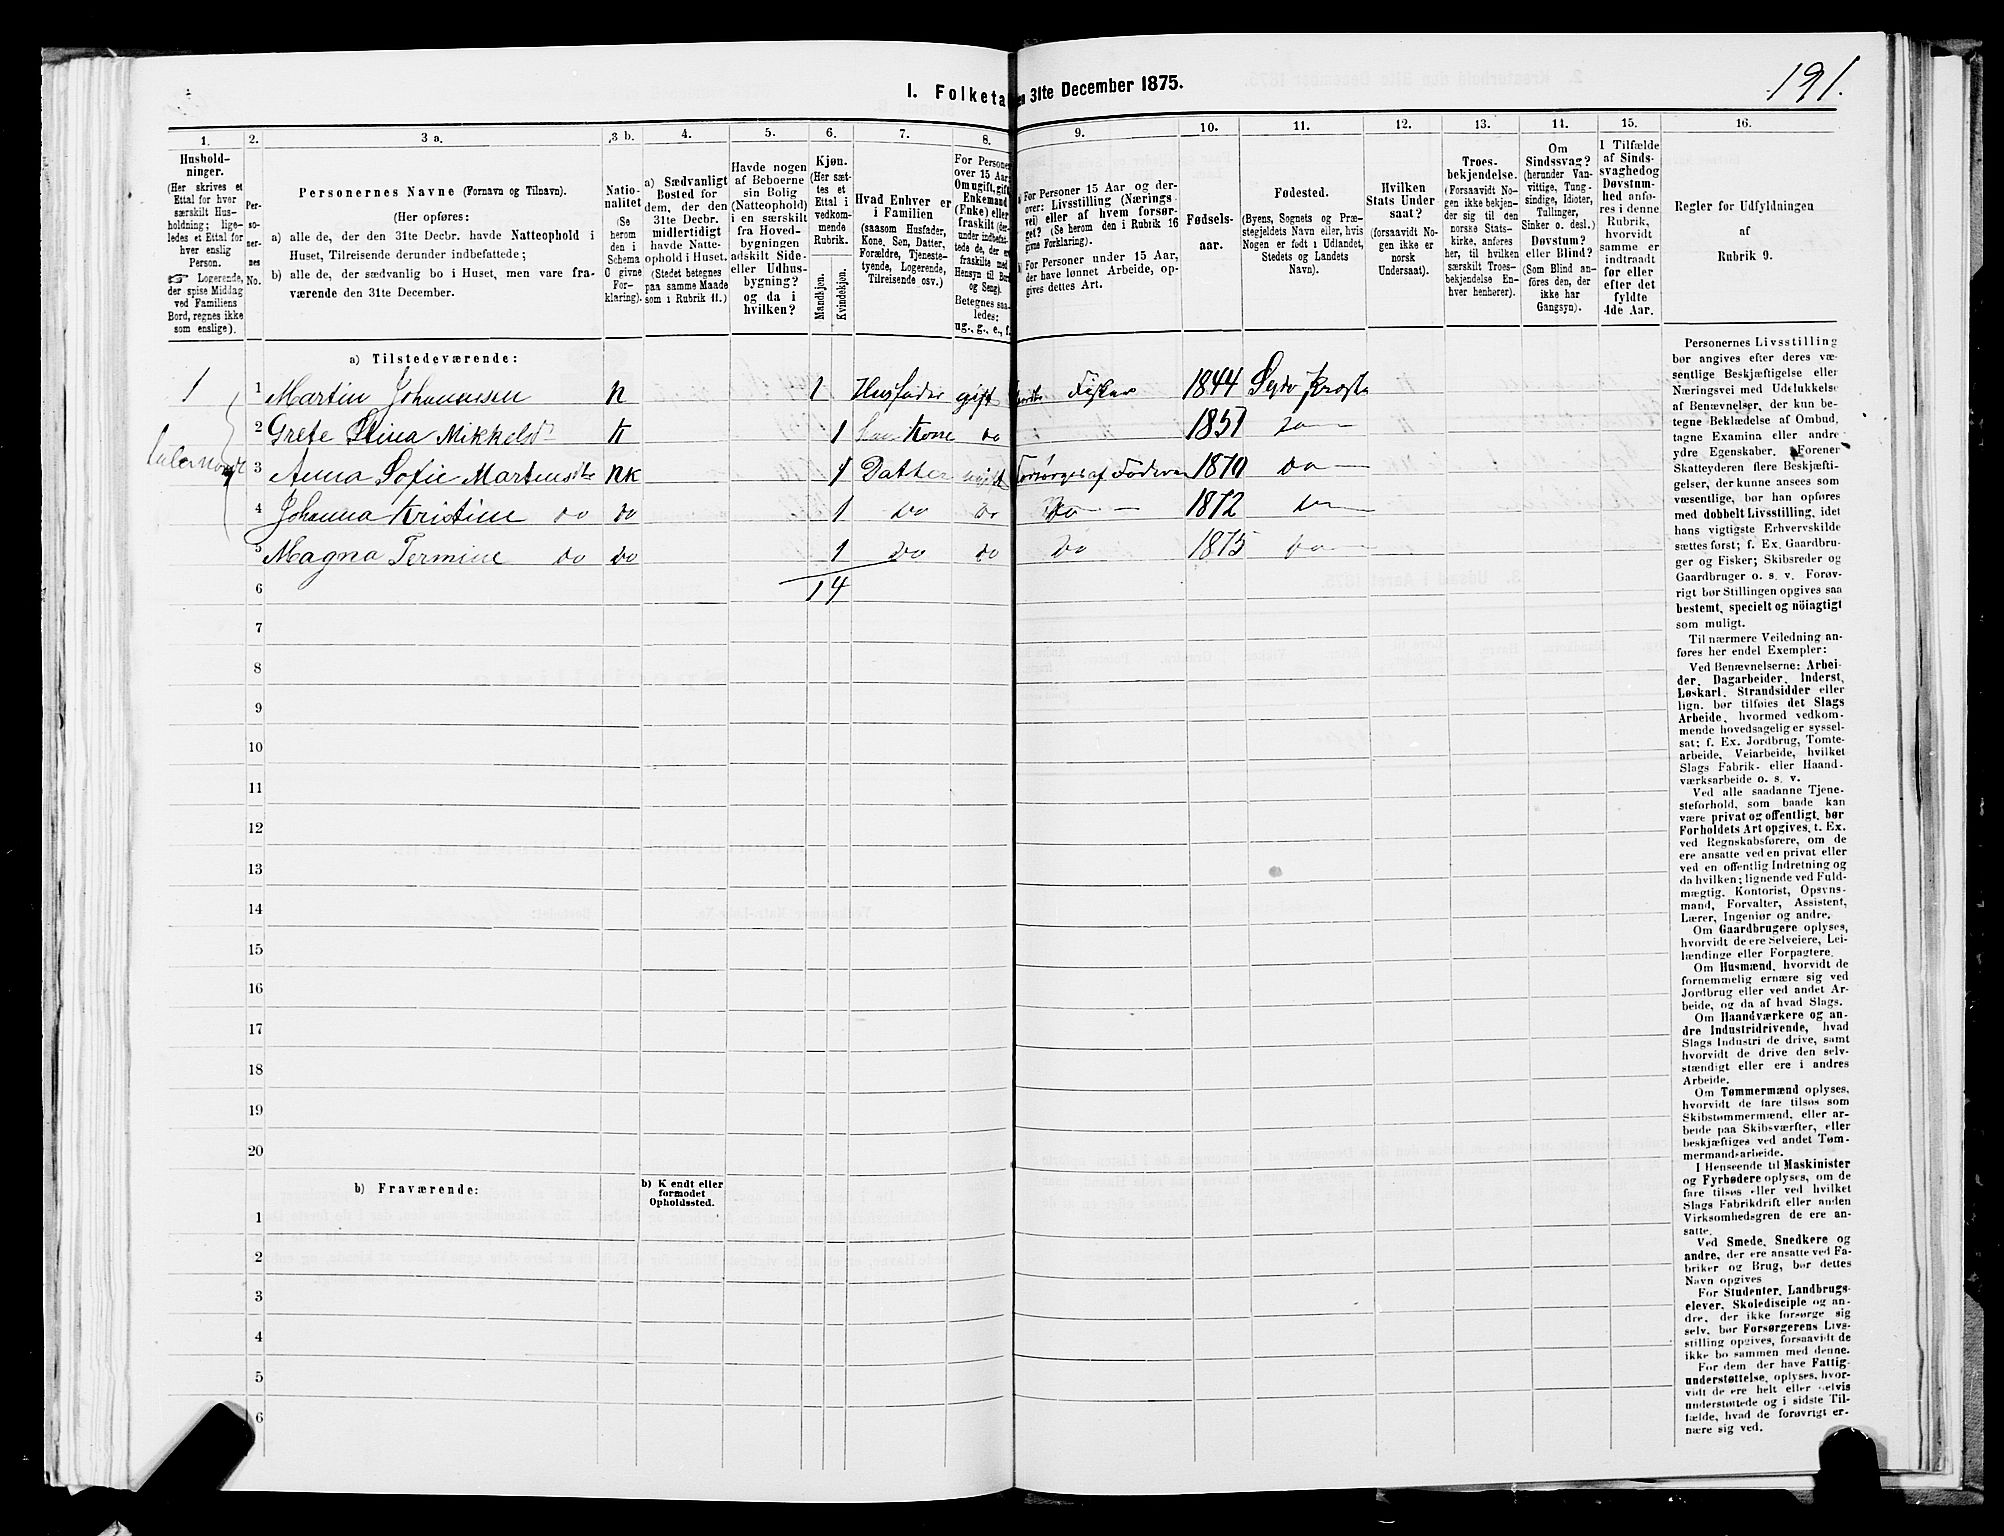 I. Folketa en 31te December 1875.
191.
1. 2. 3 a. 3 b. 4. 5. 6. 7. 8. 9. 10. 11. 12. 13. 14. 15. 16.
Hushold-
ninger.
(Her skrives et
Ettal for hver
særskilt Hus-
holdning; lige-
ledes et Ettal for
hver enslig
Person.
☞ Logerende,
der spise Middag
ved Familiens
Bord, regnes ikke
som enslige).
Per-
so-
ner-
nes
No.
Personernes Navne (Fornavn og Tilnavn).
(Her opføres:
a) alle de, der den 31te Decbr. havde Natteophold i
Huset, Tilreisende derunder indbefattede;
b) alle de, der sædvanlig bo i Huset, men vare fra-
værende den 31te December.
Natio-
nalitet
(Se
herom
den i
Schema
C givne
For-
klaring).
a) Sædvanligt
Bosted for
dem, der den
31te Decbr.
midlertidigt
havde Natte-
ophold i Huset.
(Stedet betegnes
paa samme Maade
som i Rubrik 11.)
Havde nogen
af Beboerne
sin Bolig
(Natteophold)
i en særskilt
fra Hoved-
bygningen
adskilt Side-
eller Udhus-
bygning?
og da i
hvilken?
Kjøn.
(Her sæt-
tes et
Ettal i
vedkom-
mende
Rubrik.
Mandkjøn.
Kvindekjøn.
Hvad Enhver er
i Familien
(saasom Husfader,
Kone, Søn, Datter,
Forældre, Tjeneste-
tyende, Logerende,
Tilreisende osv.)
For Personer
over 15 Aar:
Om ugift, gift,
Enkemand
(Enke) eller
fraskilt (der-
under indbefat-
tede de, der ere
fraskilte med
Hensyn til Bord
og Seng).
Betegnes saa-
ledes:
ug., g., e., f.
a) For Personer 15 Aar og der-
over: Livsstilling (Nærings
vei) eller af hvem forsør-
get? (Se herom den i Rubrik 16
givne Forklaring).
b) For Personer under 15 Aar,
der have lønnet Arbeide, op-
gives dettes Art.
Fødsels-
aar.
Fødested.
(Byens, Sognets og Præ-
stegjeldets Navn eller, hvis
Nogen er født i Udlandet,
Stedets og Landets
Navn).
Hvilken
Stats Under
saat?
(forsaavidt No-
gen ikke er
norsk
Undersaat).
Troes-
bekjendelse.
(Forsaavidt No-
gen ikke bekjen-
der sig til den
norske Stats-
kirke, anføres
her, til hvilken
særskilt Troes-
bekjendelse En-
hver henhører).
Om
Sindssvag?
(herunder Van-
vittige, Tung-
sindige, Idioter,
Tullinger,
Sinker o. desl.)
Døvstum?
eller Blind?
(Som Blind an-
føres den, der
ikke har
Gangsyn).
I Tilfælde
af Sinds-
svaghed og
Døvstum-
hed anfø-
res i denne
Rubrik,
hvorvidt
samme er
indtraadt
før eller
efter det
fyldte
4de Aar.
Regler for Udfyldningen
af
Rubrik 9.
a) Tilstedeværende:
1 1 Martin Johannesen n 1 Husfader gift Fisker 1844
2 Grete Stina Mikkelsd k 1 Kone do 1851 do
3 Anna Sofie Martensdtr nk 1 Datter ugift Forsørges af Faderen 1870 do
4 Johanna Kristine do do 1 do do do 1872 do
5 Magna Termine do do 1 do do do 1875 do
6 14
7
8
9
10
11
12
13
14
15
16
17
18
19
20
b) Fraværende:
b) Kjendt eller
formodet
Opholdssted.
1
2
3
4
5
6
Personernes Livsstilling
bør angives efter deres væ-
sentlige Beskjæftigelse eller
Næringsvei med Udelukkelse
af Benævnelser, der kun be-
tegne Beklædelse af Ombud,
tagne Examina eller andre
ydre Egenskaber. Forener
Skatteyderen flere Beskjæfti-
gelser, der kunne ansees som
væsentlige, bør han opføres
med dobbelt Livsstilling, idet
hans vigtigste Erhvervskilde
sættes først; f. Ex. Gaardbru-
ger og Fisker; Skibsreder og
Gaardbruger o. s. v. Forøv-
rigt bør Stillingen opgives saa
bestemt, specielt og nöiagtigt
som muligt.
Til nærmere Veiledning an-
føres her endel Exempler:
Ved Benævnelserne: Arbei-
der, Dagarbeider, Inderst,
Løskarl, Strandsidder eller
lign. bør tilføies det Slags
Arbeide, hvormed vedkom-
mende hovedsagelig er syssel-
sat; f. Ex. Jordbrug, Tømte-
arbeide, Veiarbeide, hvilket
Slags Fabrik- eller Haand-
værksarbeide o. s. v.
Ved alle saadanne Tjene-
steforhold, som baade kan
være privat og offentligt, bør
Forholdets Art opgives, t. Ex.
ved Regnskabsførere, om de
ere ansatte ved en privat eller
ved en offentlig Indretning og
da hvilken; lignende ved Fuld-
mægtig, Kontorist, Opsyns-
mand, Forvalter, Assistent,
Lærer, Ingeniør og andre.
Om Gaardbrugere oplyses,
hvorvidt de ere Selveiere, Lei-
lændinge eller Forpagtere.
Om Husmænd, hvorvidt de
fornemmelig ernære sig ved
Jordbrug eller ved andet Ar-
beide, og da af hvad Slags.
Om Haandværkere og an-
dre Industridrivende, hvad
Slags Industri de drive, samt
hvorvidt de drive den selv-
stændigt eller ere i andres
Arbeide.
Om Tømmermænd oplyses,
hvorvidt de fare tilsøs som
Skibstømmermænd, eller ar-
beide paa Skibsværfter, eller
beskjæftiges ved andet Tøm-
mermandsarbeide.
I Henseende til Maskinister
og Fyrbødere oplyses, om de
fare tilsøs eller ved hvilket
Slags Fabrikdrift eller anden
Virksomhedsgren de ere an-
satte.
Ved Smede, Snedkere og
andre, der ere ansatte ved Fa-
briker og Brug, bør dettes
Navn opgives
For Studenter, Landbrugs-
elever, Skoledisciple og an-
dre, der ikke forsørge sig
selv, bør Forsørgerens Livs-
stilling opgives, forsaavidt de
ikke bo sammen med denne.
For dem der have Fattig-
understøttelse, oplyses, hvor-
vidt de ere helt eller delvis
understøttede og i sidste Til-
fælde, hvad de forøvrigt er-
nære sig ved.